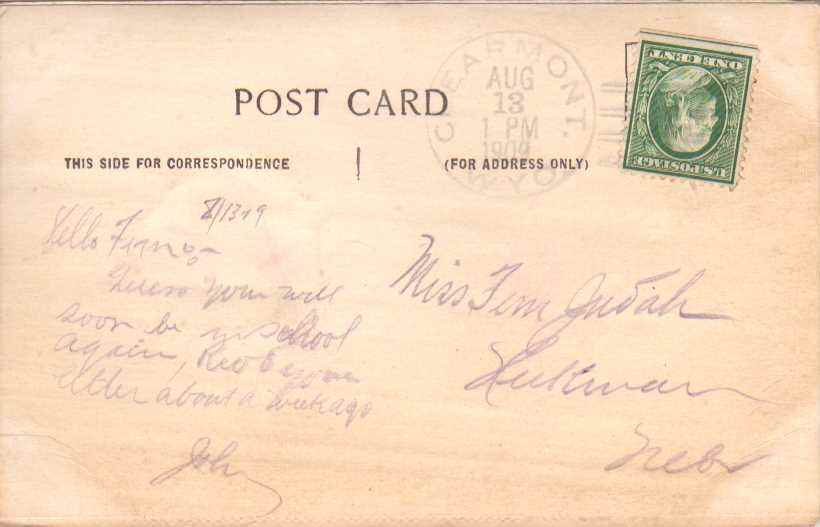 POST CARD
THIS SIDE FOR CORRESPONDENCE
(FOR ADDRESS ONLY)
CLEARMONT. WYO.
AUG
13
1 PM
1909
U.S. POSTAGE
ONE CENT
8/13-9
Hello Fern:-
Guess you will
soon be in school
again, Rec'd your
letter about a week ago
John
Miss Fern Judah
Nebr